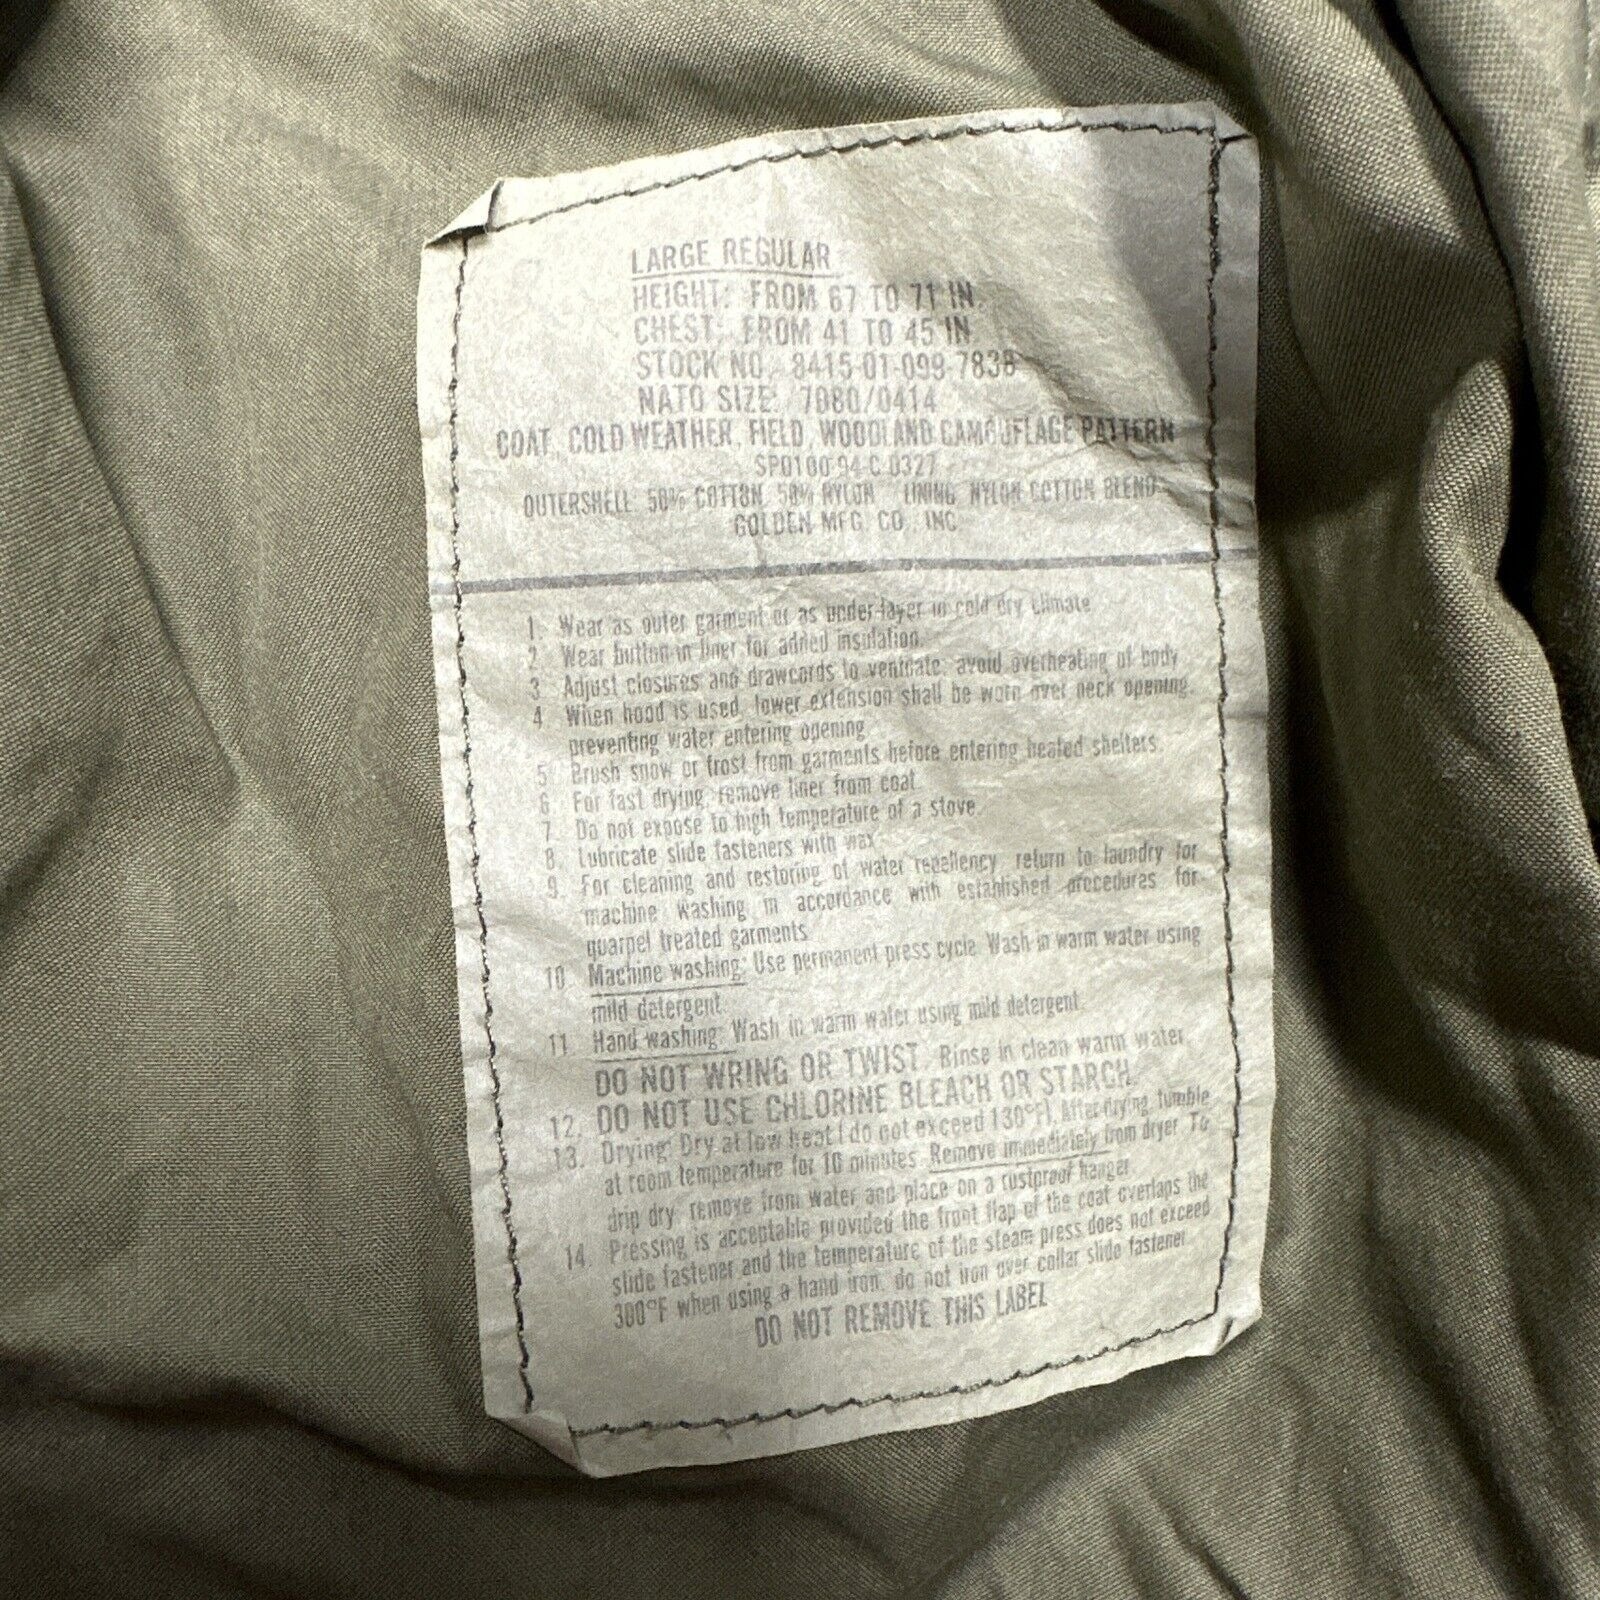 LARGE REGULAR
HEIGHT: FROM 67 TO 71 IN.
CHEST: FROM 41 TO 45 IN.
STOCK NO. 8415-01-099-7838
NATO SIZE: 7080/0414
COAT, COLD WEATHER, FIELD, WOODLAND CAMOUFLAGE PATTERN
SPO100-94-C-0327
OUTERSHELL: 50% COTTON, 50% NYLON LINING: NYLON COTTON BLEND
GOLDEN MFG. CO., INC.
1. Wear as outer garment or as under-layer in cold dry climate.
2. Wear button-in liner for added insulation.
3. Adjust closures and drawcords to ventilate; avoid overheating of body.
4. When hood is used, lower extension shall be worn over neck opening,
preventing water entering opening.
5. Brush snow or frost from garments before entering heated shelters.
6. For fast drying, remove liner from coat.
7. Do not expose to high temperature of a stove.
8. Lubricate slide fasteners with wax.
9. For cleaning and restoring of water repellency, return to laundry for
machine washing in accordance with established procedures for
quarpel treated garments.
10. Machine washing: Use permanent press cycle. Wash in warm water using
mild detergent.
11. Hand washing: Wash in warm water using mild detergent.
DO NOT WRING OR TWIST. Rinse in clean warm water.
12. DO NOT USE CHLORINE BLEACH OR STARCH.
13. Drying: Dry at low heat (do not exceed 130°F). After drying, tumble
at room temperature for 10 minutes. Remove immediately from dryer. To
drip dry, remove from water and place on a rustproof hanger.
14. Pressing is acceptable provided the front flap of the coat overlaps the
slide fastener and the temperature of the steam press does not exceed
300°F when using a hand iron, do not iron over collar slide fastener.
DO NOT REMOVE THIS LABEL